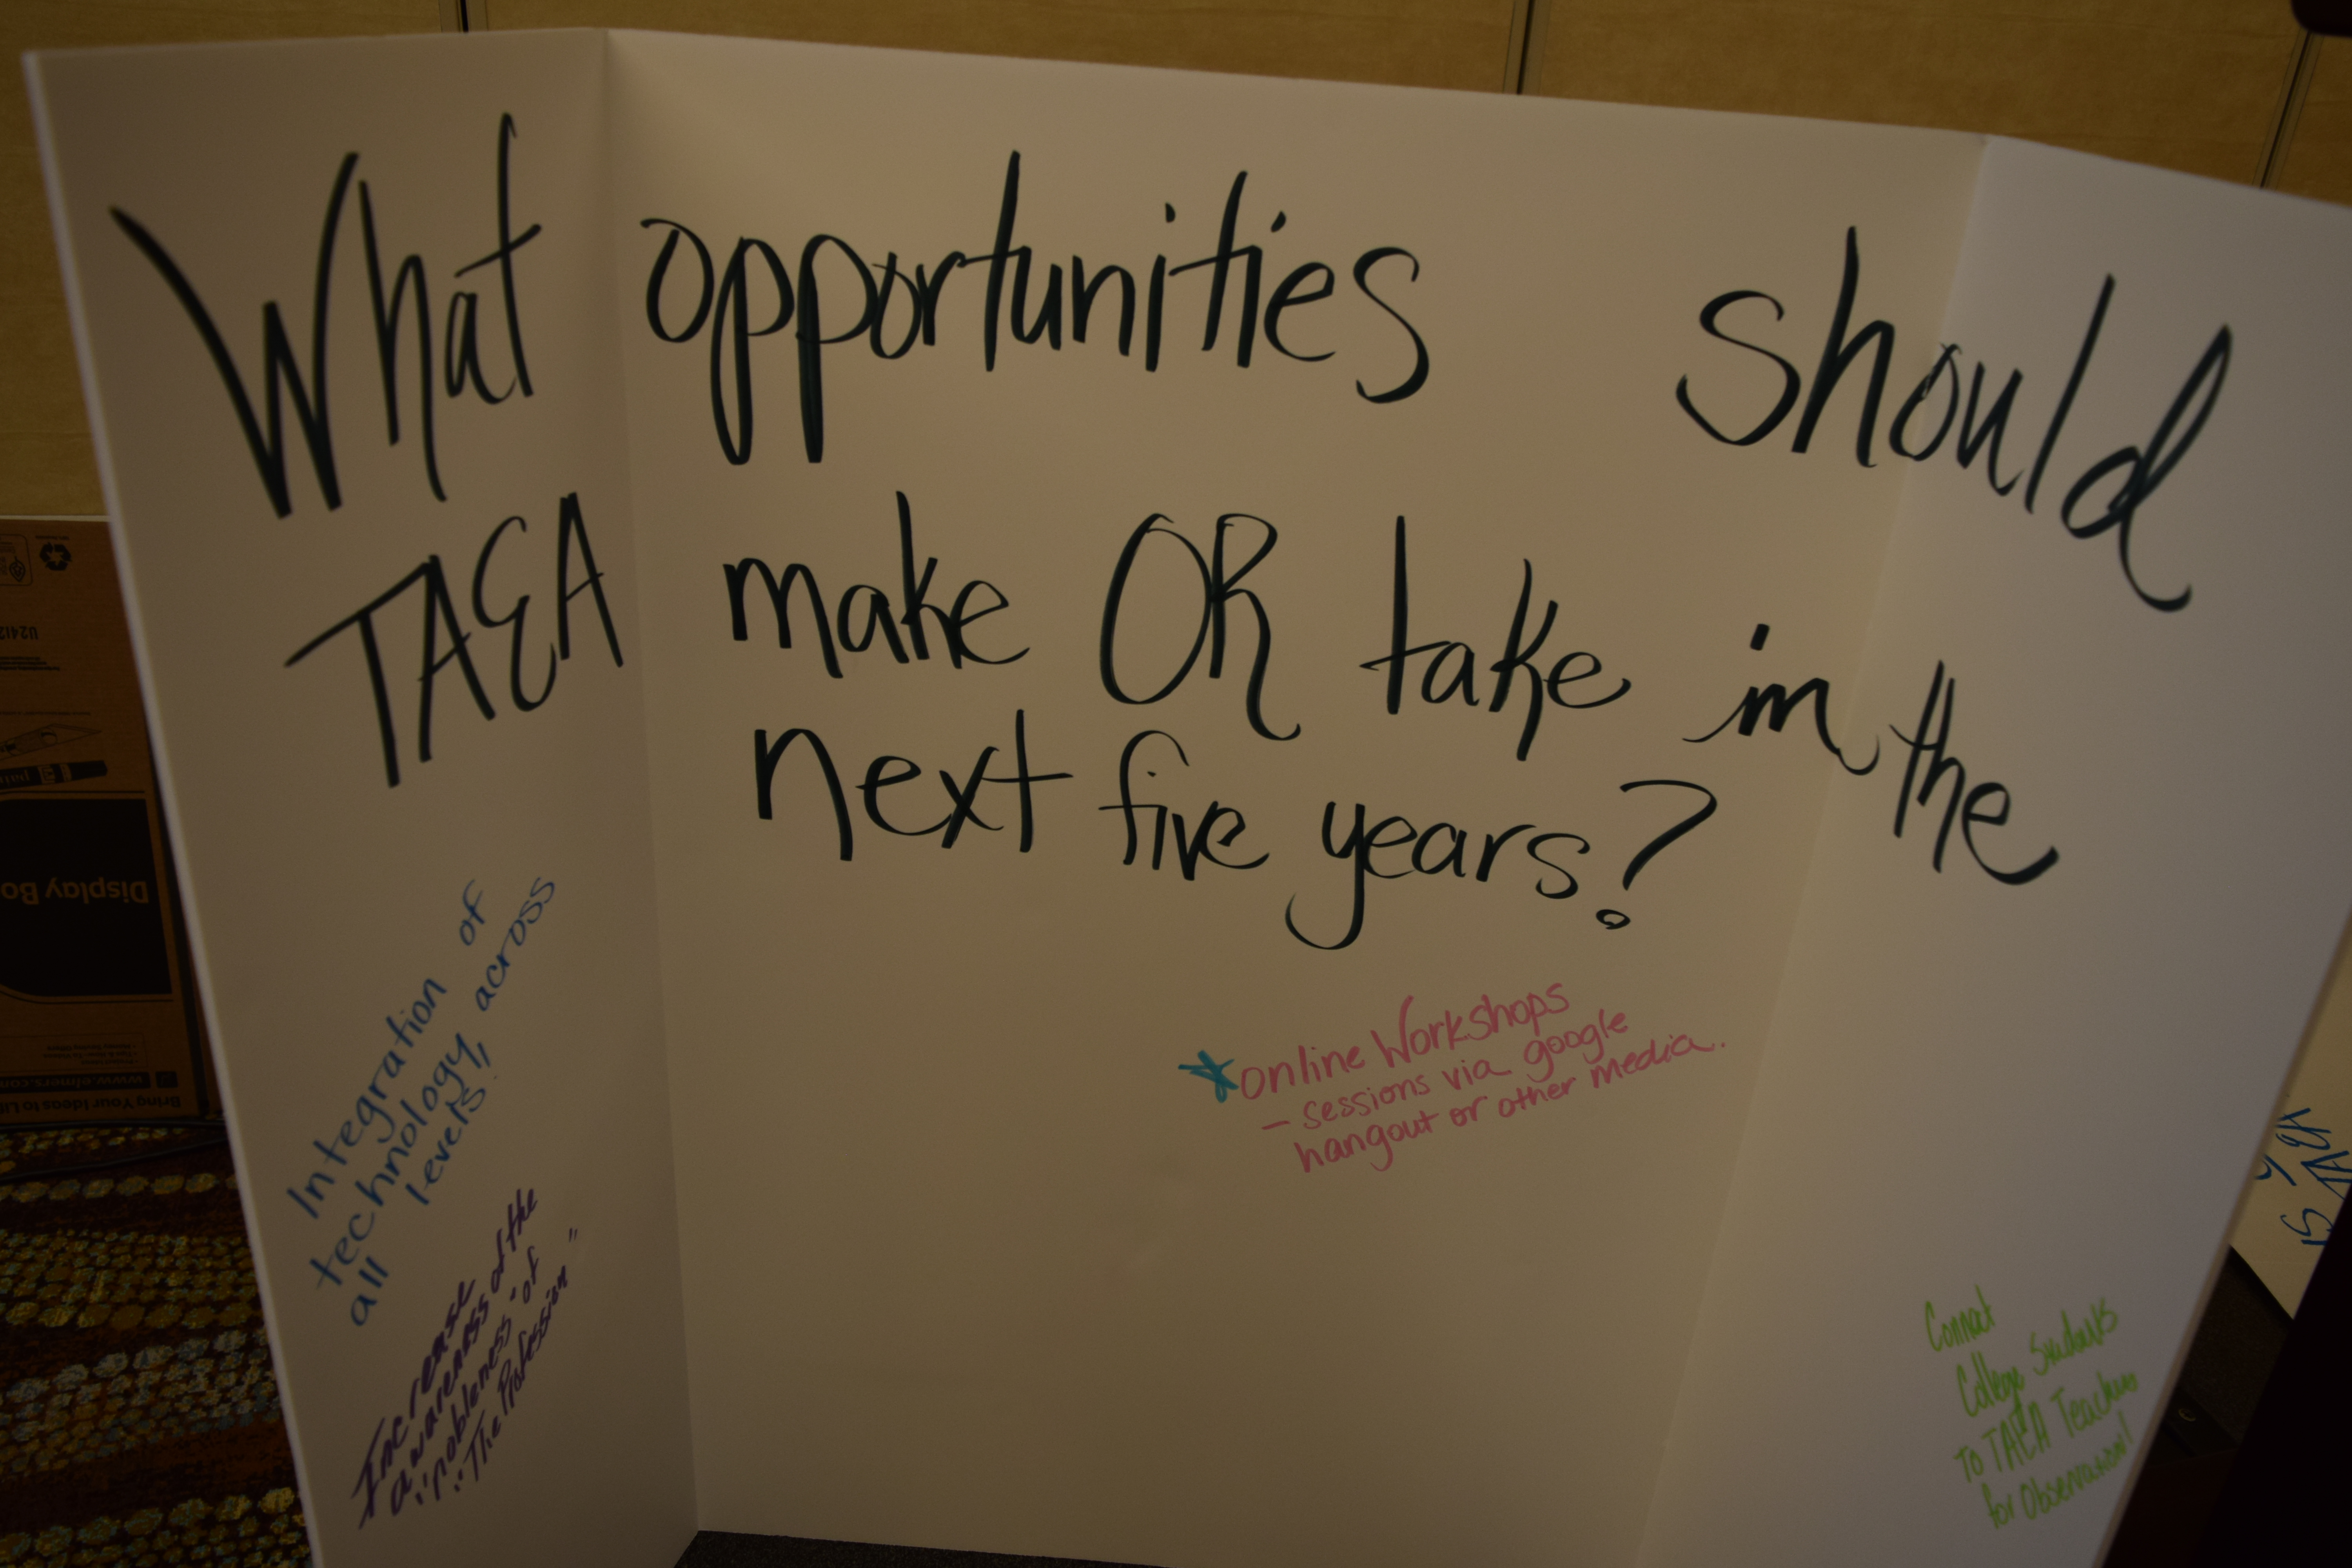 What opportunities should
TAEA make OR take in the
next five years?
Integration of
technology, across
all levels.
Increase
awareness of the
"nobleness" of
"The Profession"
*online Workshops
- sessions via google
hangout or other media.
Connect
College Students
to TAEA Teachers
for Observation!
Display Bo
www.elmers.com
Bring Your Ideas to Li